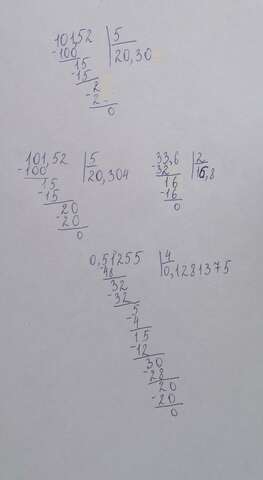 101,52 | 5
-100 | 20,30
15
-15
2
-2
0
101,52 | 5
-100 | 20,304
15
-15
20
-20
0
33,6 | 2
-32 | 16,8
16
-16
0
0,51255 | 4
-48 | 0,1281375
32
-32
5
-4
15
-12
30
-28
20
-20
0